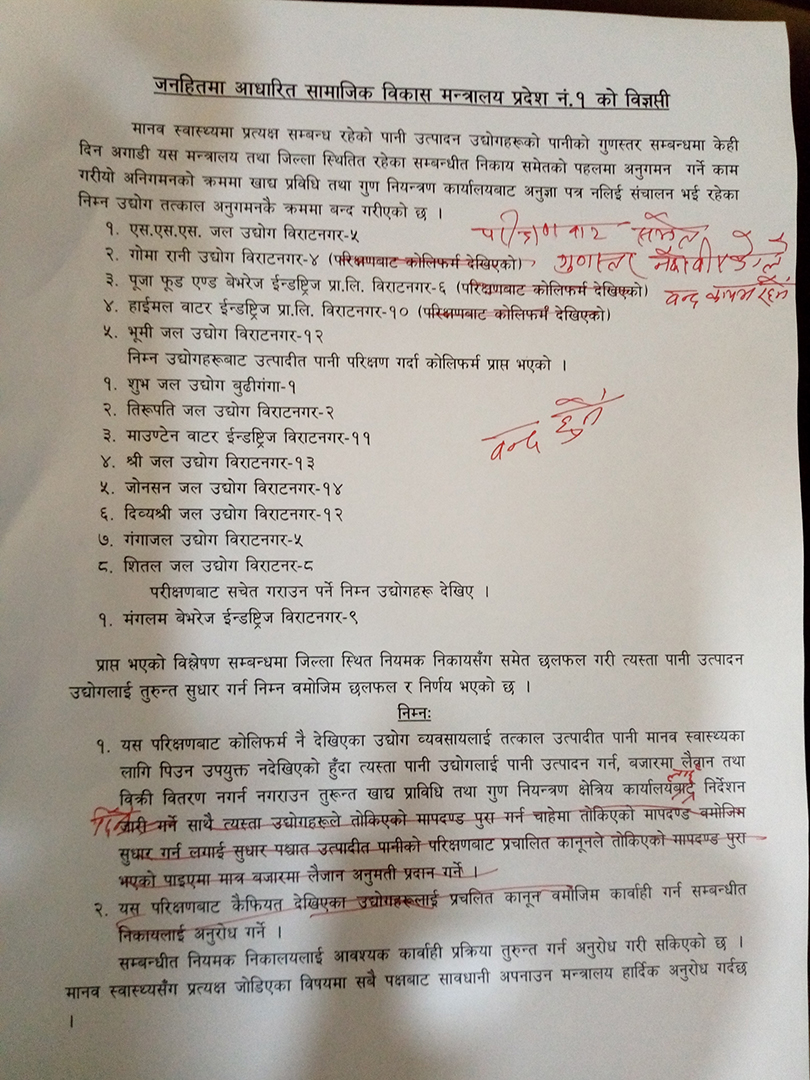 जनहितमा आधारित सामाजिक विकास मन्त्रालय प्रदेश नं.१ को विज्ञप्ती
मानव स्वास्थ्यमा प्रत्यक्ष सम्बन्ध रहेको पानी उत्पादन उद्योगहरूको पानीको गुणस्तर सम्बन्धमा केही
दिन अगाडी यस मन्त्रालय तथा जिल्ला स्थितित रहेका सम्बन्धीत निकाय समेतको पहलमा अनुगमन गर्ने काम
गरीयो अनिगमनको क्रममा खाद्य प्रविधि तथा गुण नियन्त्रण कार्यालयबाट अनुज्ञा पत्र नलिई संचालन भई रहेका
निम्न उद्योग तत्काल अनुगमनकै क्रममा बन्द गरीएको छ ।
१. एस.एस.एस. जल उद्योग विराटनगर-५ परीक्षणबाट समेत
२. गोमा रानी उद्योग विराटनगर-४ (परिक्षणबाट कोलिफर्म देखिएको) गुणस्तर
३. पूजा फूड एण्ड बेभरेज ईन्डष्ट्रिज प्रा.लि. विराटनगर-६ (परिक्षणबाट कोलिफर्म देखिएको) वन्द
४. हाईमल वाटर ईन्डष्ट्रिज प्रा.लि. विराटनगर-१० (परिक्षणबाट कोलिफर्म देखिएको)
५. भूमी जल उद्योग विराटनगर-१२
निम्न उद्योगहरूबाट उत्पादीत पानी परिक्षण गर्दा कोलिफर्म प्राप्त भएको ।
१. शुभ जल उद्योग बुढीगंगा-१
२. तिरूपति जल उद्योग विराटनगर-२
३. माउण्टेन वाटर ईन्डष्ट्रिज विराटनगर-११ वन्द हुने
४. श्री जल उद्योग विराटनगर-१३
५. जोनसन जल उद्योग विराटनगर-१४
६. दिव्यश्री जल उद्योग विराटनगर-१२
७. गंगाजल उद्योग विराटनगर-५
८. शितल जल उद्योग विराटनर-८
परीक्षणबाट सचेत गराउन पर्ने निम्न उद्योगहरू देखिए ।
१. मंगलम बेभरेज ईन्डष्ट्रिज विराटनगर-९
प्राप्त भएको विश्लेषण सम्बन्धमा जिल्ला स्थित नियमक निकायसँग समेत छलफल गरी त्यस्ता पानी उत्पादन
उद्योगलाई तुरुन्त सुधार गर्न निम्न वमोजिम छलफल र निर्णय भएको छ ।
निम्नः
१. यस परिक्षणबाट कोलिफर्म नै देखिएका उद्योग व्यवसायलाई तत्काल उत्पादीत पानी मानव स्वास्थ्यका
लागि पिउन उपयुक्त नदेखिएको हुँदा त्यस्ता पानी उद्योगलाई पानी उत्पादन गर्न, बजारमा लैजान तथा
विक्री वितरण नगर्न नगराउन तुरून्त खाद्य प्राविधि तथा गुण नियन्त्रण क्षेत्रिय कार्यालयबाट निर्देशन
जारी गर्ने साथै त्यस्ता उद्योगहरूले तोकिएको मापदण्ड पुरा गर्न चाहेमा तोकिएको मापदण्ड वमोजिम
सुधार गर्न लगाई सुधार पश्चात उत्पादीत पानीको परिक्षणबाट प्रचालित कानूनले तोकिएको मापदण्ड पुरा
भएको पाइएमा मात्र बजारमा लैजान अनुमती प्रदान गर्ने ।
२. यस परिक्षणबाट कैफियत देखिएका उद्योगहरूलाई प्रचलित कानून वमोजिम कार्वाही गर्न सम्बन्धीत
निकायलाई अनुरोध गर्ने ।
सम्बन्धीत नियमक निकालयलाई आवश्यक कार्वाही प्रक्रिया तुरुन्त गर्न अनुरोध गरी सकिएको छ ।
मानव स्वास्थ्यसँग प्रत्यक्ष जोडिएका विषयमा सबै पक्षबाट सावधानी अपनाउन मन्त्रालय हार्दिक अनुरोध गर्दछ
।